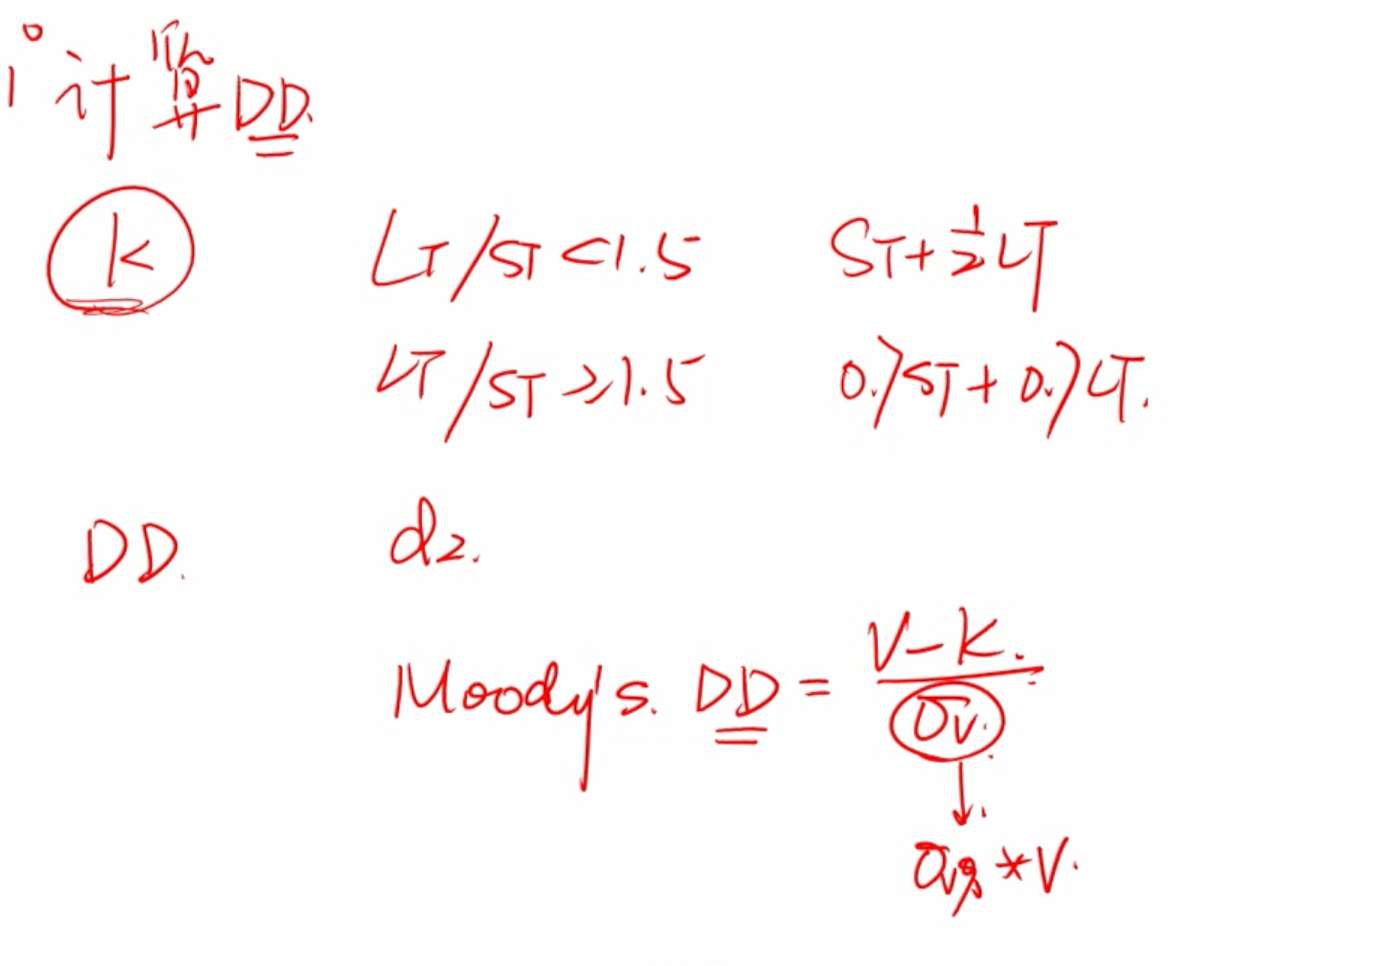 1° 计算DD.
K LT/ST<1.5 ST+½LT
LT/ST≥1.5 0.7ST+0.7LT.
DD. d₂.
Moody's. DD = (V-K.)/(σv.)
↓
σv% *V.